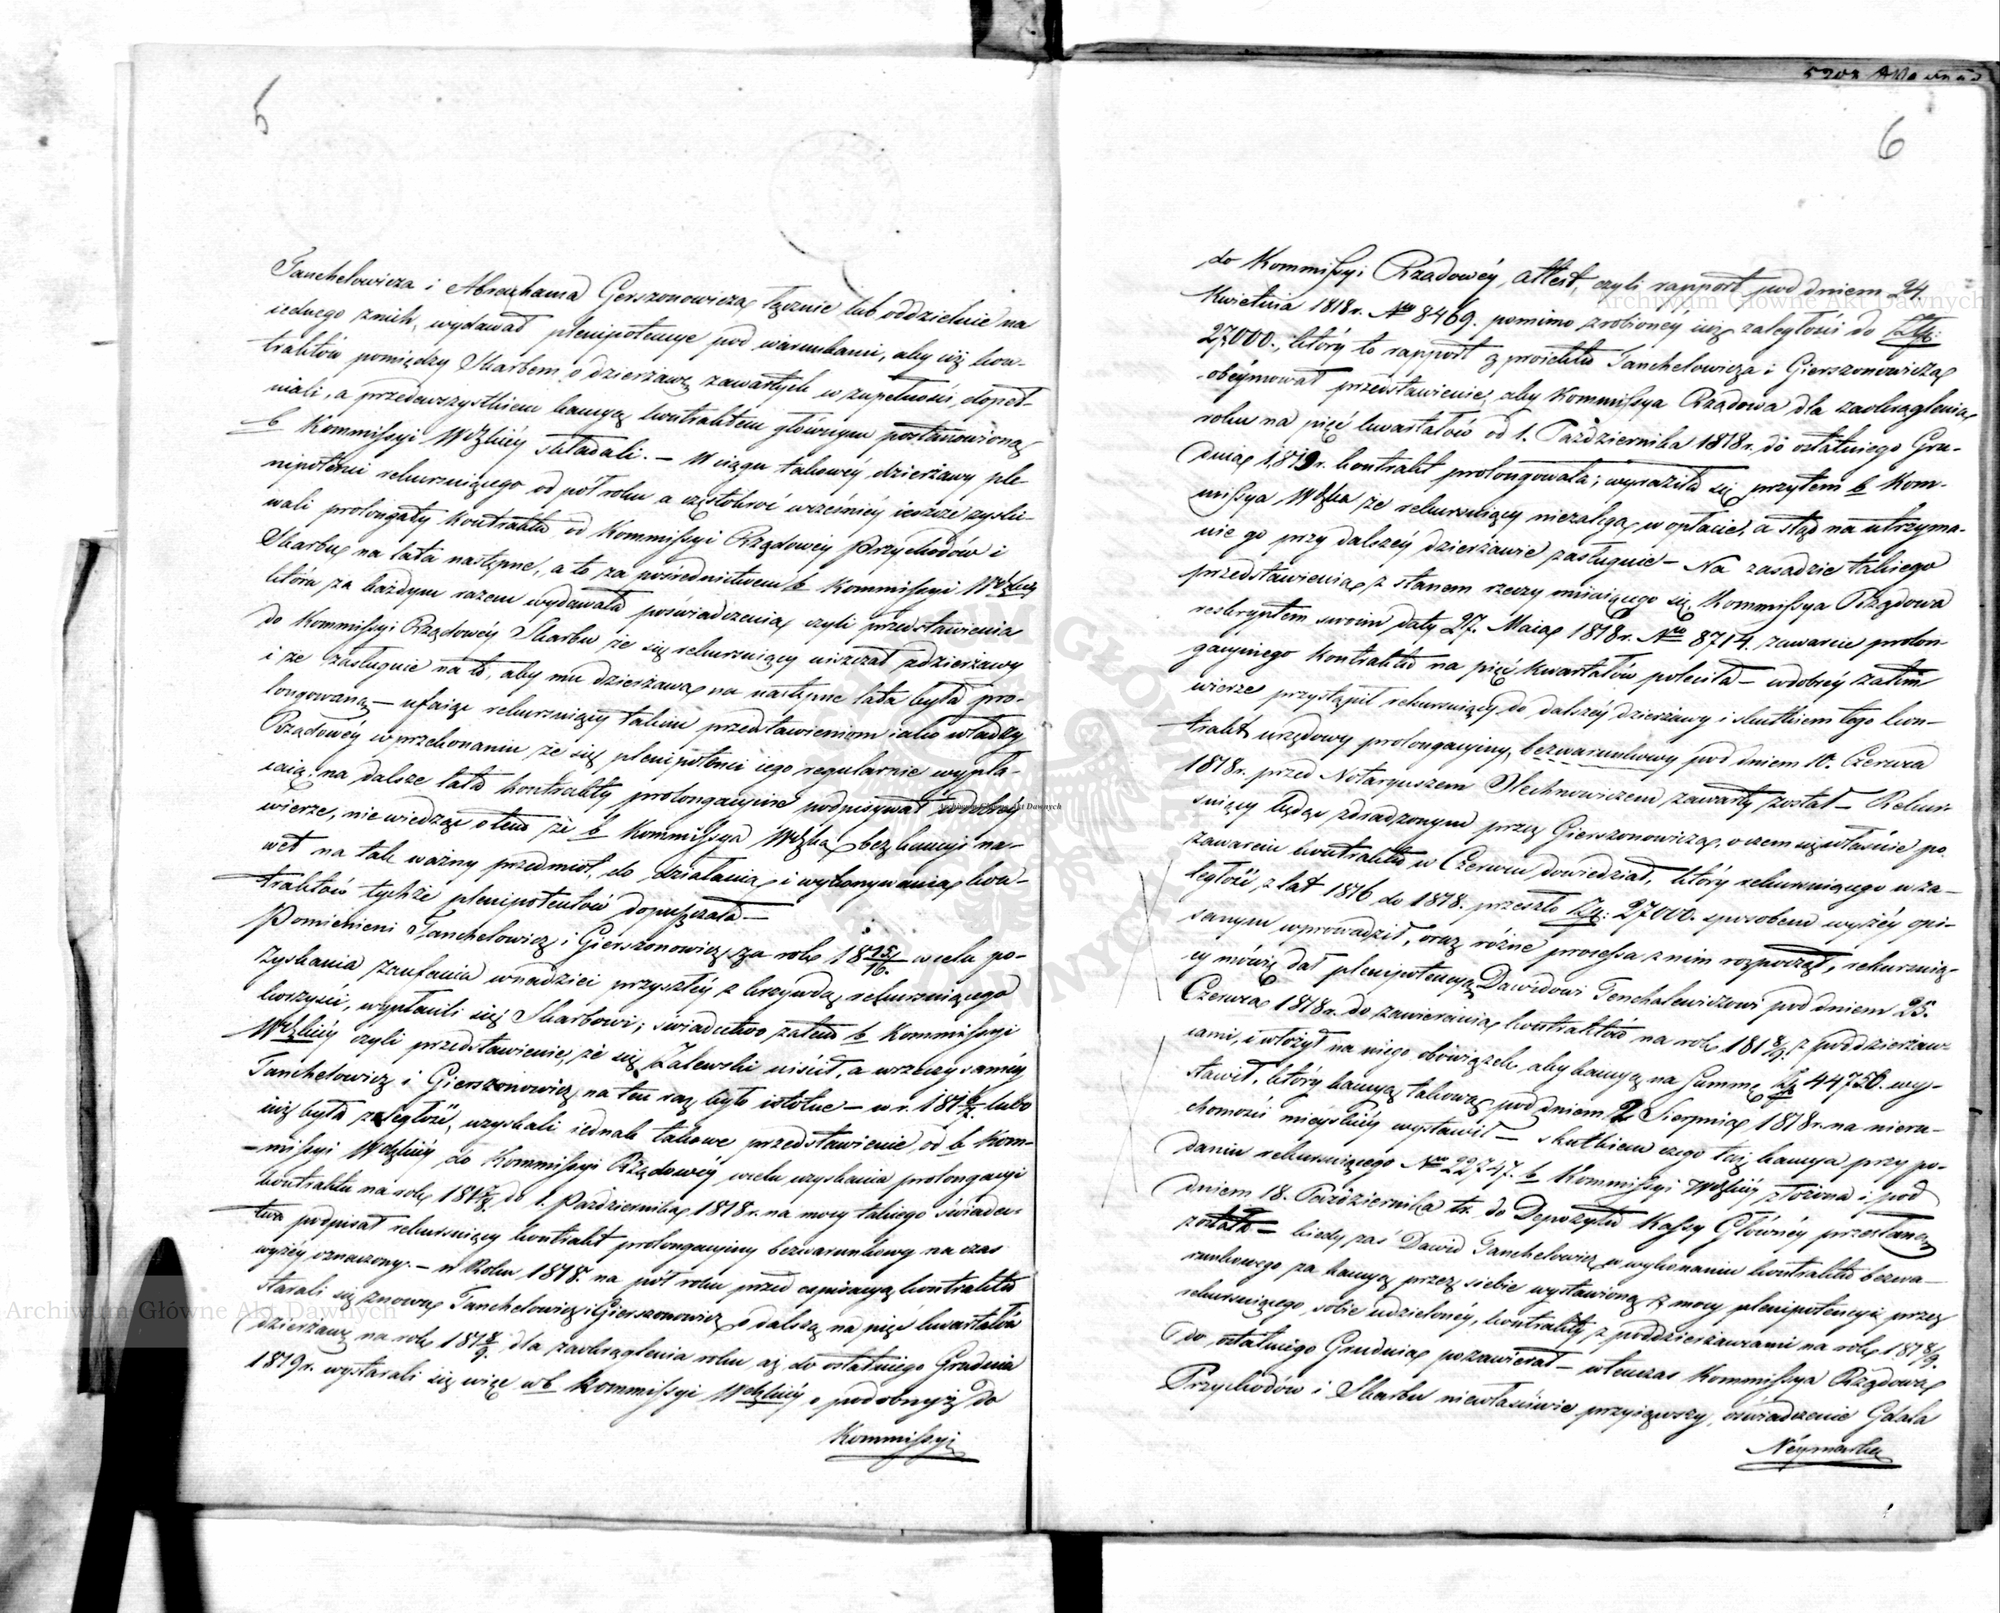 5
Tanchelowicza i Abrachama Gerszonowicza łącznie lub oddzielnie na
iednego z nich, wydawał plenipotencye pod warunkami, aby iéj kon-
traktów pomiędzy Skarbem o dzierżawę zawartych w zupełności dopeł-
niali, a przedewszystkiem kaucyą kontraktem głównym postanowioną
b Kommissyi Wdzkiéy składali. — W ciągu takowéy dzierżawy ple-
nipotenci rekurruiącego od pół roku a częstokroć wcześniéy ieszcze zyski-
wali prolongaty Kontraktu od Kommissyi Rządowéy Przychodów i
Skarbu na lata następne, a to za pośrednictwem b Kommissyi Wdzkiéy
która za każdym razem wydawała poświadczenia czyli przedstawienia
do Kommissyi Rządowéy Skarbu że się rekurruiący uiszczał z dzierżawy
i że zasługuie na to, aby mu dzierżawa na następne lata była pro-
longowaną — ufaiąc rekurruiący takim przedstawieniom iako władzy
Rządowéy w przekonaniu że się plenipotenci iego regularnie wypła-
caią, na dalsze lata kontrakty prolongacyine podpisywał w dobréy
wierze, nie wiedząc o tem że b Kommissya Wdzka bez kaucyi na-
wet na tak ważny przedmiot, do działania i wykonywania kon-
traktów tychże plenipotentów dopuszczała —
Pomienieni Tanchelowicz i Gierszonowicz za rok 1815/16. w celu po-
zyskania zaufania w nadziei przyszłéy z krzywdą rekurruiącego
korzyści, wypłacili się Skarbowi; świadectwo zatem b Kommissyi
Wdzkiéy czyli przedstawienie, że się Zalewski uiścił, a w rzeczy saméy
Tanchelowicz i Gierszonowicz na ten raz było istotne — w r. 1816/7. lubo
iuż była zaległość, uzyskali iednak takowe przedstawienie od b Kom-
-missyi Wdzkiéy do Kommissyi Rządowéy w celu uzyskania prolongacyi
kontraktu na rok 1817/8 do 1. Października 1818 r. na mocy takiego świadec-
twa podpisał rekurruiący kontrakt prolongacyiny bezwarunkowy na czas
wyżéy oznaczony. — w Roku 1818. na pół roku przed expiracyą kontraktu
starali się znowu Tanchelowicz i Gierszonowicz o dalszą na pięć kwartałów
dzierżawę na rok 1818/9. dla zaokrąglenia roku aż do ostatniego Grudnia
1819 r. wystarali się więc w b Kommissyi Wdzkiéy o podobnyż do
Kommissyi
6
do Kommissyi Rządowéy, attest, czyli rapport pod dniem 24
Kwietnia 1818 r. Nro 8469. pomimo zrobionéy iuż zaległości do Złp:
27000., który to rapport z proiektu Tanchelowicza i Gierszonowicza
obéymował przedstawienie, aby Kommissya Rządowa dla zaokrąglenia
roku na pięć kwartałów od 1. Października 1818 r. do ostatniego Gru-
dnia 1819 r. kontrakt prolongowała; wyraziła się przytem b Kom-
missya Wdzka że rekurruiący niezalega w opłacie, a ztąd na utrzyma-
nie go przy dalszéy dzierżawie zasługuie — Na zasadzie takiego
przedstawienia z stanem rzeczy miiaiącego się, Kommissya Rządowa
reskryptem swoim daty 27. Maia 1818 r. Nro 8714. zawarcie prolon
gacyinego Kontraktu na pięć Kwartałów poleciła — w dobréy zatem
wierze przystąpił rekurruiący do dalszéy dzierżawy i skutkiem tego kon-
trakt urzędowy prolongacyiny, bezwarunkowy pod dniem 10. Czerwca
1818 r. przed Notaryuszem Stechnowiczem zawarty został — Rekur-
ruiący będąc zdradzonym przez Gierszonowicza, o czem się właśnie po
zawarciu kontraktu w Czerwcu dowiedział, który rekurruiącego w za-
ległość z lat 1816 do 1818. przeszło Złp: 27000. sposobem wyżéy opi-
sanym wprowadził, oraz różne processa z nim rozpoczął, rekurruią-
cy mówię dał plenipotencyą Dawidowi Tenchelewiczowi pod dniem 25.
Czerwca 1818 r. do zawierania kontraktów na rok 1818/9. z poddzierżaw-
cami, i włożył na niego obowiązek, aby kaucyą na Summę Złp 44750. wy-
stawił, który kaucyą takową pod dniem 2 Sierpnia 1818 r. na nieru-
chomości mieyskiéy wystawił — skutkiem czego taż kaucya przy po-
daniu rekurruiącego Nro 22747. b Kommissyi Wdzkiéy złożona i pod
dniem 18. Października t.r. do Depozytu Kassy Głównéy przesłana
została — kiedy zaś Dawid Tanchelowicz w wykonaniu kontraktu bezwa-
runkowego za kaucyą przez siebie wystawioną z mocy plenipotencyi przez
rekurruiącego sobie udzielonéy, kontrakty z poddzierżawcami na rok 1818/9.
do ostatniego Grudnia pozawierał — wtenczas Kommissya Rządowa
Przychodów i Skarbu niewłaściwie przyiąwszy, oświadczenie Gdala
Néymarka
Archiwum Główne Akt Dawnych
Archiwum Główne Akt Dawnych
Archiwum Główne Akt Dawnych